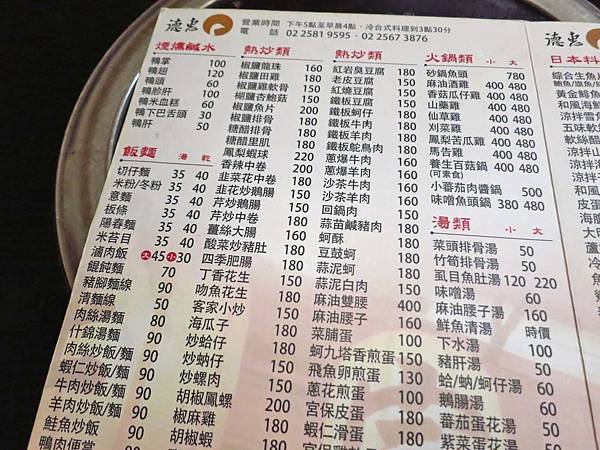 德惠
營業時間 下午5點至早晨4點,冷台式料理到3點30分
電 話 02 2581 9595.02 2567 3876
煙燻鹹水
鴨掌 100
鴨翅 120
鴨頭 60
鴨胗肝 100
鴨米血糕 60
鴨下巴舌頭 30
鴨肝 50
飯麵 湯 乾
切仔麵 35 40
米粉/冬粉 35 40
意麵 35 40
板條 35 40
陽春麵 35 40
米苔目 35 40
滷肉飯 大45 小30
餛飩麵 70
豬腳麵線 90
清麵線 50
肉絲湯麵 80
什錦湯麵 90
肉絲炒飯/麵 90
蝦仁炒飯/麵 90
牛肉炒飯/麵 90
羊肉炒飯/麵 90
鮭魚炒飯 90
鴨肉便當
熱炒類
椒鹽龍珠 160
椒鹽田雞 180
椒鹽雞軟骨 150
糊鹽杏鮑菇 150
椒鹽魚片 200
椒鹽排骨 180
糖醋排骨 180
糖醋里肌 180
鳳梨蝦球 220
香辣中卷 180
韭菜花中卷 180
韭花炒鵝腸 150
芹炒鵝腸 150
芹炒中卷 180
薑絲大腸 160
酸菜炒豬肚 150
四季肥腸 180
丁香花生 150
吻魚花生 180
客家小炒 150
海瓜子 180
炒蛤仔 180
炒蚋仔 180
炒螺肉 150
胡椒鳳螺 200
椒麻雞 180
胡椒蝦 180
熱炒類
紅岩臭豆腐 180
老皮豆腐 180
紅燒豆腐 150
鐵板豆腐 180
鐵板蚵仔 180
鐵板牛肉 180
鐵板羊肉 180
鐵板鴕鳥肉 180
蔥爆牛肉 150
蔥爆羊肉 150
沙茶牛肉 150
沙茶羊肉 150
回鍋肉 150
蒜苗鹹豬肉 180
蚵酥 180
豆鼓蚵 180
蒜泥蚵 180
蒜泥白肉 150
麻油雙腰 400
麻油腰子 160
菜脯蛋 100
蚵九塔香煎蛋 150
飛魚卵煎蛋 130
蔥花煎蛋 100
宮保皮蛋 150
蝦仁滑蛋 180
火鍋類 小 大
砂鍋魚頭 780
麻油酒雞 400 480
香菇瓜仔雞 400 480
山藥雞 400 480
仙草雞 400 480
刈菜雞 400 480
鳳梨苦瓜雞 400 480
馬告雞 400 480
養生百菇鍋 400 480
(可素食)
小蕃茄肉醬鍋 500
味噌魚頭鍋 380 480
湯類 小 大
菜頭排骨湯 50
竹筍排骨湯 50
虱目魚肚湯 120 220
味噌湯 60
麻油腰子湯 160
鮮魚清湯 時價
下水湯 100
豬肝湯 50
蛤/蚋/蚵仔湯 60
鵝腸湯 60
蕃茄蛋花湯 50
紫菜蛋花湯 50
德惠
日本料
綜合生魚片
黃金鯽魚
和風海鮮
涼拌雪
涼拌
五味軟
軟絲
涼拌山
涼拌
和風
皮蛋